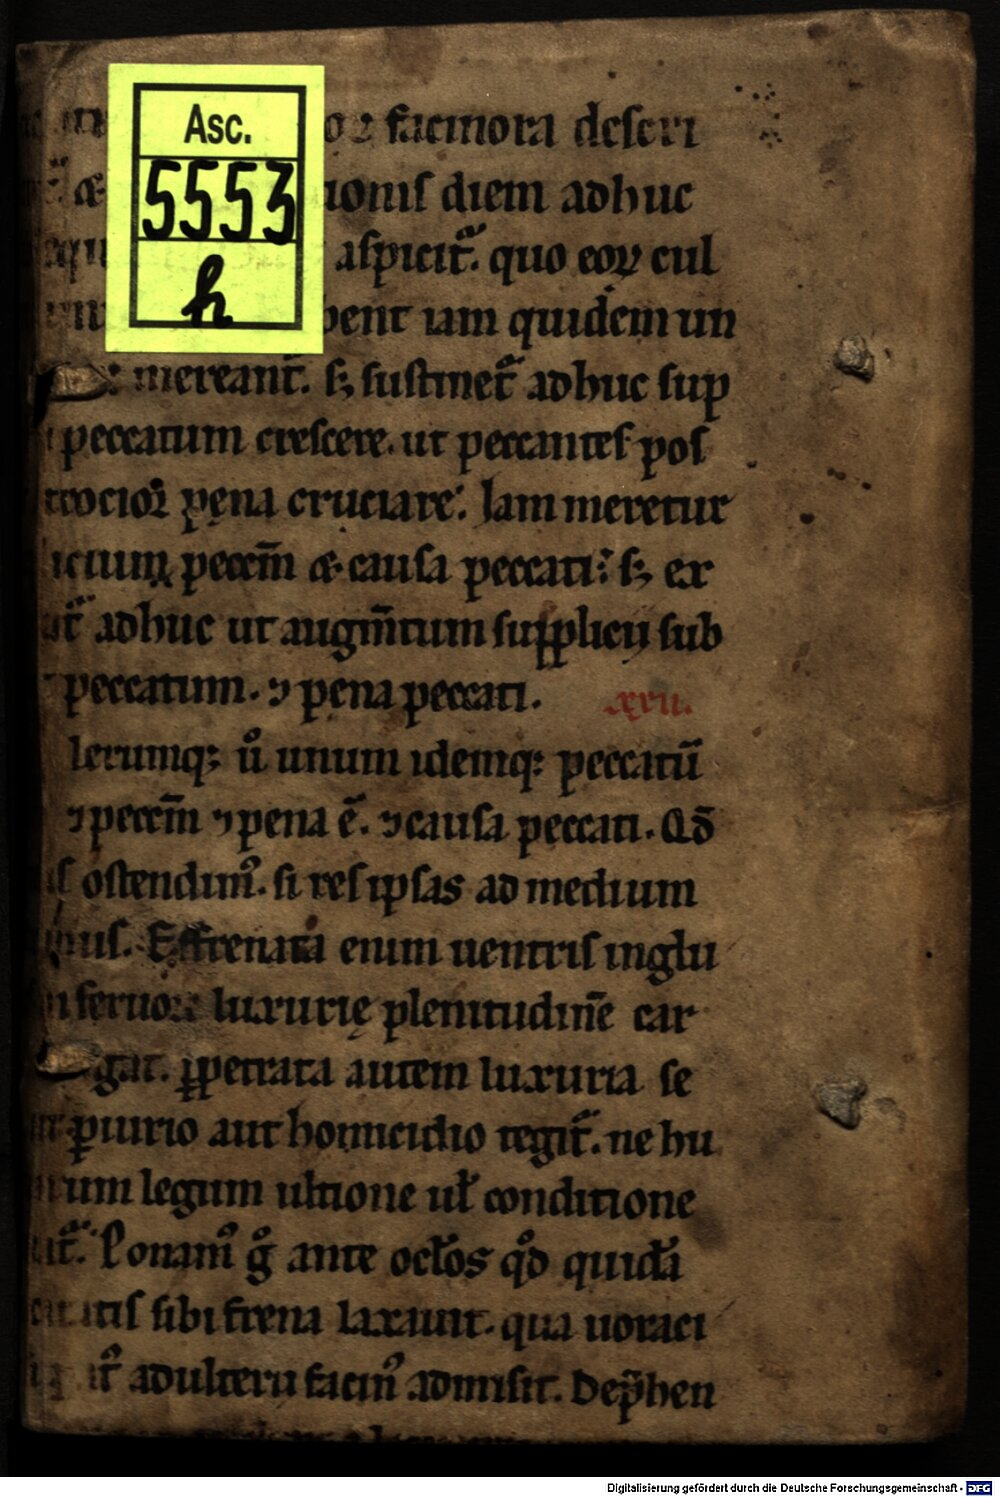 Asc.
5553
h
facinora descri
ionis diem adhuc
aspicit̄. quo eoꝝ cul
bent iam quidem un
mereant̄. sꝫ sustinet̄ adhuc sup
peccatum crescere. ut peccantes pos
pęna cruciare. Iam meretur
peccm̄ & causa peccati; sꝫ ex
adhuc ut augm̄tum supplicij sub
peccatum. ⁊ pena peccati.
xxii.
lerumq; ū unum idemq; peccatū
⁊ peccm̄ ⁊ pena ē. ⁊ causa peccati. Qd̄
ostendim᷒. si res ipsas ad medium
Effrenata enim uentris inglu
feruor luxurię plenitudinē car
gat. ꝑpetrata autem luxuria se
ꝑiurio aut homicidio tegit̄. ne hu
legum ultione ul̄ conditione
Ponam᷒ g̊ ante ocl̄os qd̊ quidā
sibi frena laxauit. qua uoraci
adulterii facin᷒ admisit. Dep̄hen
Digitalisierung gefördert durch die Deutsche Forschungsgemeinschaft - DFG